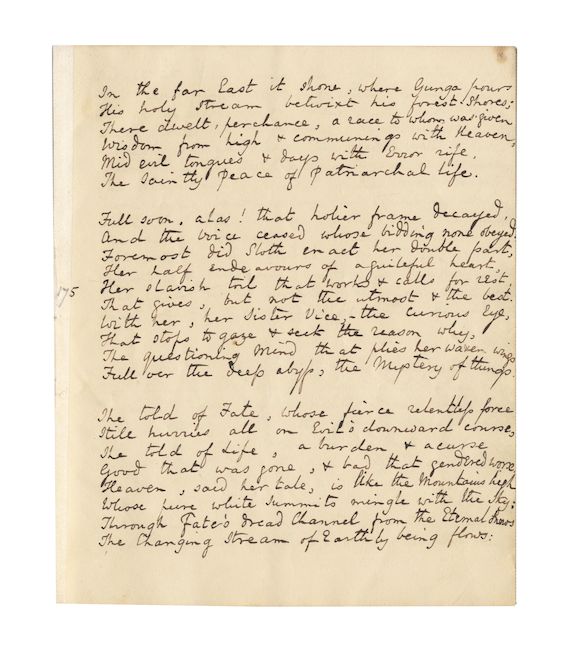 In the far East it shone, where Gunga pours
His holy Stream betwixt his forest-shores;
There dwelt, perchance, a race to whom was given
Wisdom from high & communings with Heaven,
Mid evil tongues & days with Error rife,
The Saintly Peace of Patriarchal life.
Full soon, alas! that holier frame decayed,
And the Voice ceased whose bidding none obeyed.
Foremost did Sloth enact her double part,
Her half endeavours of a guileful heart,
Her slavish toil that works & calls for rest
That gives, but not the utmost & the best.
With her, her Sister Vice,- the curious Eye,
That stops to gaze & seek the reason why,
The questioning Mind that plies her waxen wings
Full over the deep abyss, the Mystery of things
She told of Fate, whose fierce relentless force
Still hurries all on Evil's downward course,
She told of Life, a burden & a curse
Good that was gone, & bad that gendered worse,
Heaven, said her tale, is like the Mountains high
Whose pure white Summits mingle with the Sky;
Through Fate's dread Channel from the Eternal Snows
The Changing Stream of Earthly being flows: